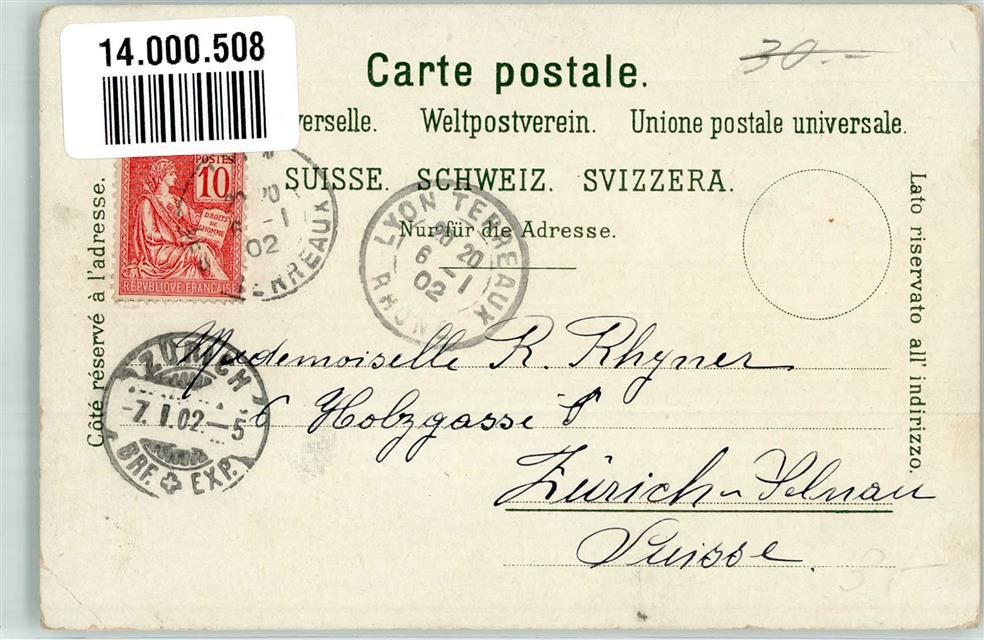 14.000.508
30.-
Carte postale.
verselle. Weltpostverein. Unione postale universale.
SUISSE. SCHWEIZ. SVIZZERA.
Nur für die Adresse.
Côté réservé à l'adresse.
Lato riservato all' indirizzo.
POSTES
10
DROITS DE L'HOMME
REPVBLIQVE FRANÇAISE
20 6 -1 02
TERREAUX
LYON TERREAUX
20 20
6 -1
02
RHONE
ZÜRICH
-7.I.02.-5
BRF. EXP.
Mademoiselle R. Rhyner
6 Holzgasse 6
Zürich-Selnau
Suisse.